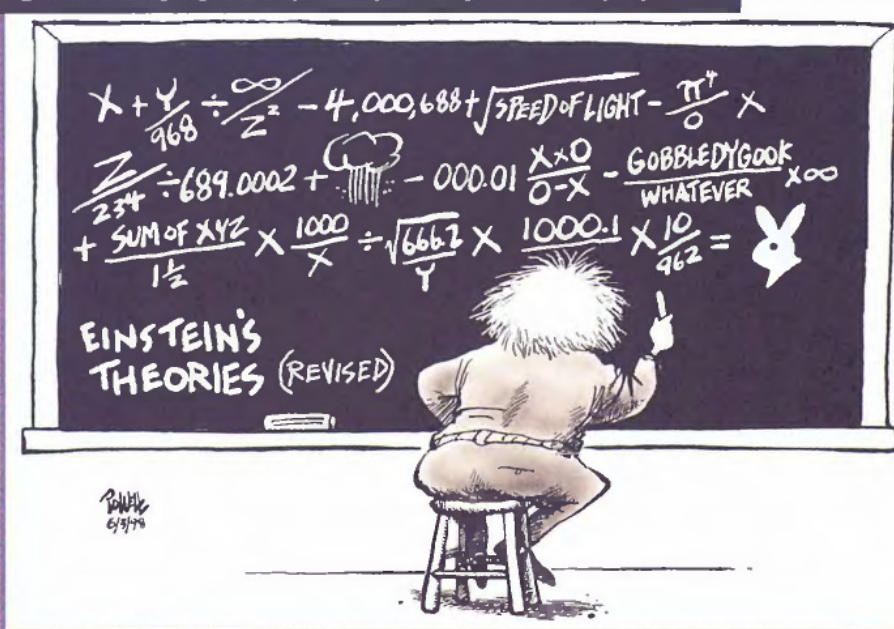 X + Y/968 ÷ ∞/Z² − 4,000,688 + √SPEED OF LIGHT − π⁴/0 X
Z/234 ÷ 689.0002 + − 000.01 X×0/0−X − GOBBLEDYGOOK/WHATEVER X∞
+ SUM OF XYZ/1½ X 1000/X ÷ √666.2/Y X 1000.1 X 10/962 =
EINSTEIN'S
THEORIES (REVISED)
POWELL
6/3/98